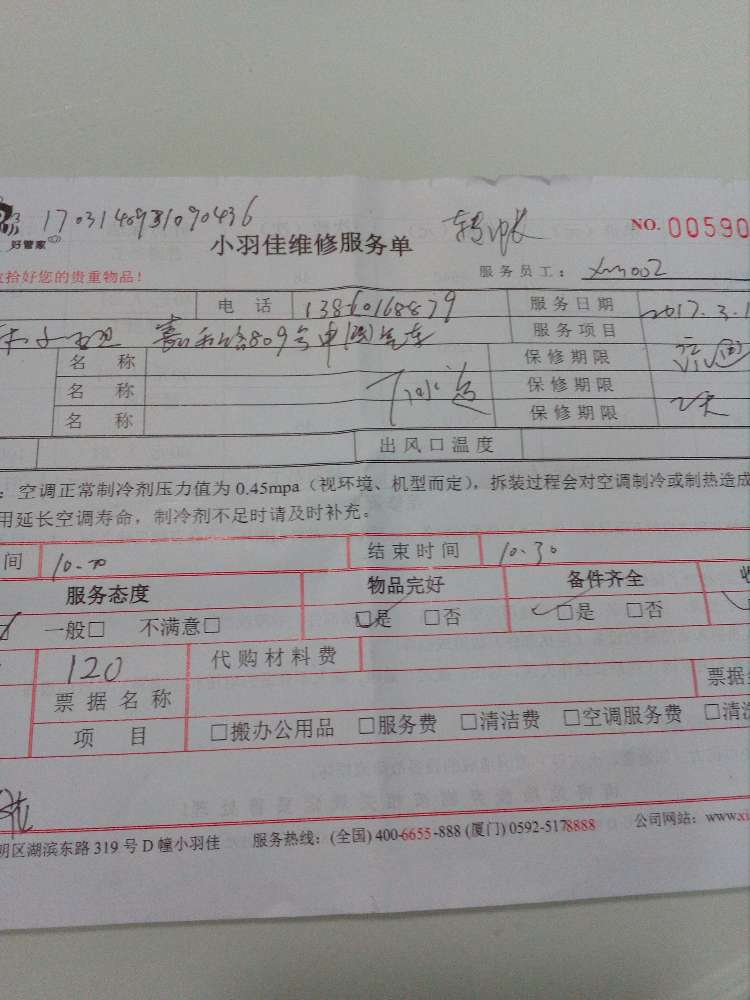 1703140931090436 转帐 NO. 00590
好管家
小羽佳维修服务单
收拾好您的贵重物品! 服务员工: xm002
电 话 服务日期 2017.3.1
嘉禾路809号申闽汽车 服务项目
名 称 保修期限
名 称 下水道 保修期限
名 称 保修期限 2天
出风口温度
：空调正常制冷剂压力值为0.45mpa（视环境、机型而定），拆装过程会对空调制冷或制热造成
用延长空调寿命，制冷剂不足时请及时补充。
间 10.00 结束时间 10.30
服务态度 物品完好 备件齐全
一般□ 不满意□ □是 □否 □是 □否
120 代购材料费
票据名称 票据
项 目 □搬办公用品 □服务费 □清洁费 □空调服务费 □清
明区湖滨东路319号D幢小羽佳 服务热线: (全国) 400-6655-888 (厦门) 0592-5178888 公司网站: www.xi